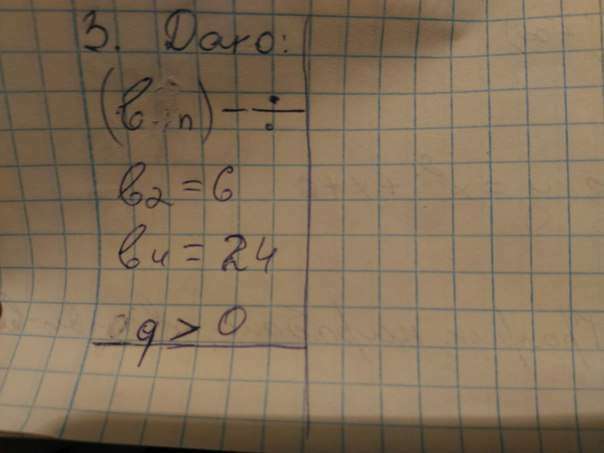 3. Дано:
(bn) - ÷
b2 = 6
b4 = 24
q > 0